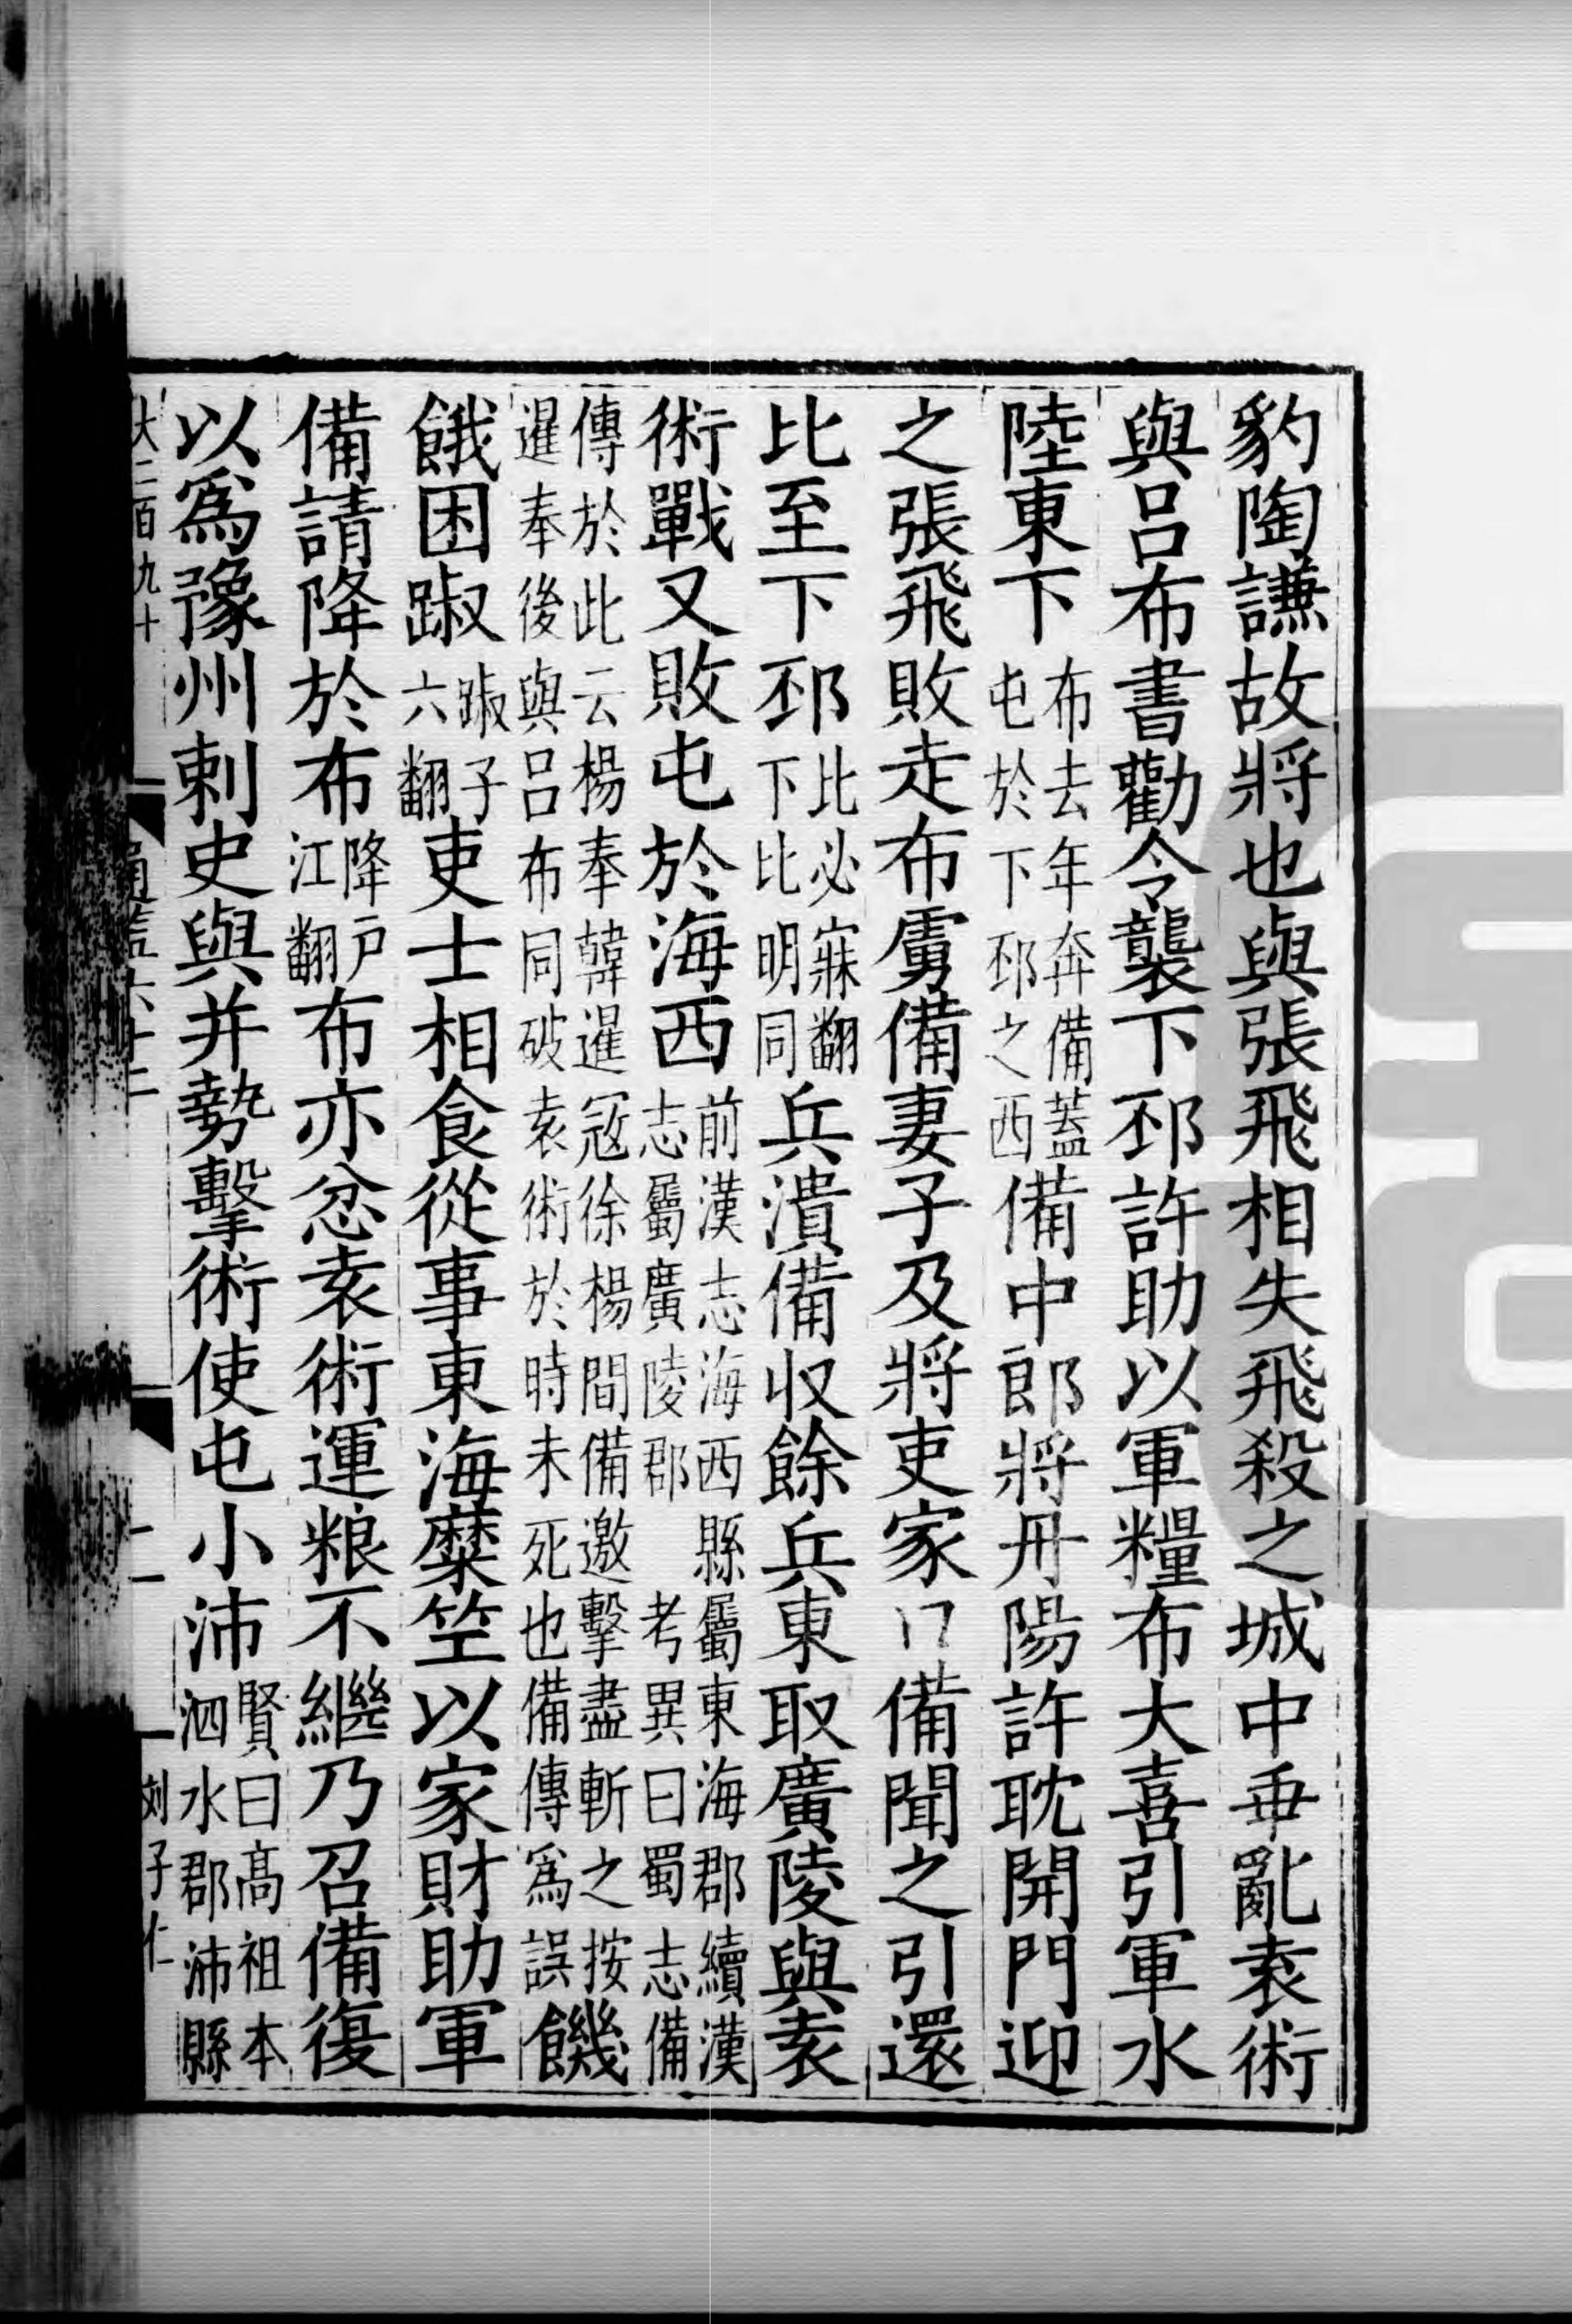 豹陶謙故將也與張飛相失飛殺之城中乖亂袁術
與呂布書勸令襲下邳許助以軍糧布大喜引軍水
陸東下布去年奔備蓋屯於下邳之西備中郎將丹陽許耽開門迎
之張飛敗走布虜備妻子及將吏家口備聞之引還
比至下邳比必寐翻下比明同兵潰備収餘兵東取廣陵與袁
術戰又敗屯於海西前漢志海西縣屬東海郡續漢志屬廣陵郡考異曰蜀志備
傳於此云楊奉韓暹寇徐楊間備邀擊盡斬之按暹奉後與呂布同破袁術於時未死也備傳爲誤饑
餓困踧踧子六翻吏士相食從事東海糜竺以家財助軍
備請降於布降戶江翻布亦忿袁術運粮不繼乃召備復
以爲豫州刺史與并勢擊術使屯小沛賢曰高祖本泗水郡沛縣
大二百九十
通鑑六十二
二
刘子仁